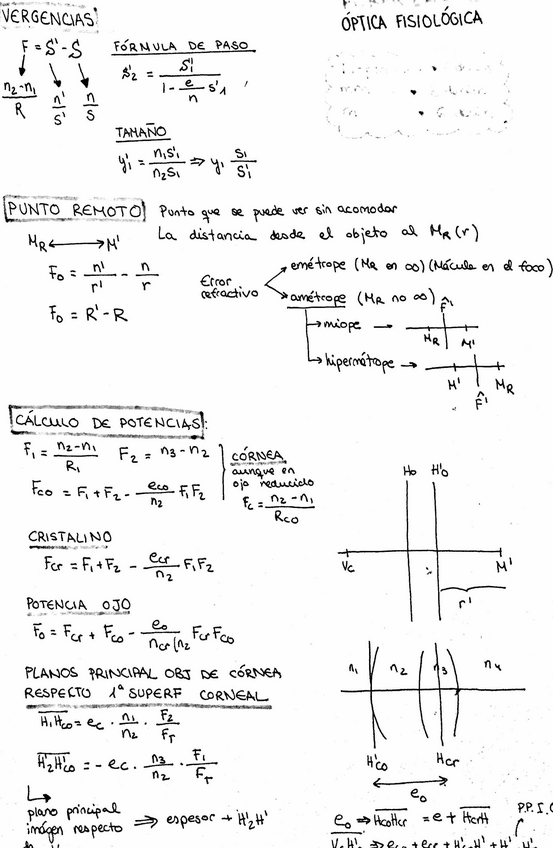 VERGENCIAS
ÓPTICA FISIOLÓGICA
F = S' - S
n2-n1 / R
n' / S'
n / S
FÓRMULA DE PASO
S'2 = S'1 / 1 - e/n S'1
TAMAÑO
y'1 = n1S'1 / n2S1 ⇒ y1 S1 / S'1
PUNTO REMOTO
Punto que se puede ver sin acomodar
La distancia desde el objeto al MR (r)
MR ⟷ M'
F0 = n'/r' - n/r
F0 = R' - R
Error refractivo
emétrope (MR en ∞) (Mácula en el foco)
amétrope (MR no ∞)
miope →
F̂'
MR M'
hipermétrope →
M' F̂' MR
CÁLCULO DE POTENCIAS:
F1 = n2-n1 / R1
F2 = n3 - n2
FCO = F1 + F2 - eco/n2 F1F2
CÓRNEA
aunque en
ojo reducido
Fc = n2-n1 / RCO
CRISTALINO
Fcr = F1 + F2 - ecr/n2 F1F2
POTENCIA OJO
F0 = Fcr + Fco - e0/ncr|n2 Fcr Fco
PLANOS PRINCIPAL OBJ DE CÓRNEA
RESPECTO 1ª SUPERF CORNEAL
H1Hco = ec · n1/n2 · F2/FT
H'2H'co = - ec · n3/n2 · F1/FT
plano principal
imágen respecto ⇒ espesor + H'2H'
Ho H'o
Vc M'
r'
n1 n2 n3 n4
H'co Hcr
e0
e0 ⇒ HcoHcr = e + HcrH
P.P.I.